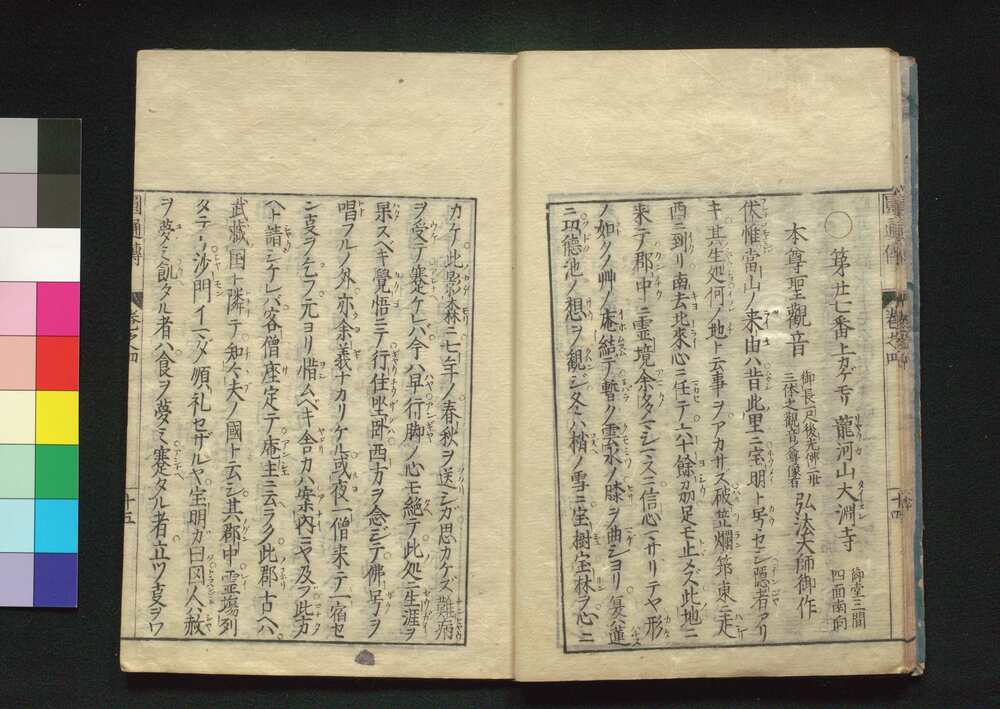 〇 第廿七番上カゲモリ 龍河山大淵寺 御堂三間四面南向
本尊聖觀音 御長一尺後光佛二世三体之觀音尊像 弘法大師御作
伏惟當山ノ来由ハ昔此里ニ宝明ト号セシ隠者アリ
キ其生処何ノ地ト云事ヲアカサス破笠爛筇東ニ走
西ニ到リ南去北来心ニ任テ六十餘刕足モ止メズ此地ニ
来テ郡中ニ霊境余タマシマスニ信心マサリテヤ形
ノ如ク艸ノ庵結テ暫ク雲水ノ膝ヲ曲シヨリ夏ハ蓮
ニ功徳池ノ想ヲ観ジ冬ハ楷ノ雪ニ宝樹宝林ヲ心ニ
十四
カケ此影森ニ七年ノ春秋ヲ送シガ思カケズ難病
ヲ受テ蹇ケレバ今ハ早行脚ノ心モ絶テ此処ニ生涯ヲ
果スベキ覺悟ニテ行住坐臥西方ヲ念ジテ佛号ヲ
唱フルノ外亦余義ナカリケル或夜一僧来テ一宿セ
ン叓ヲ乞フ元ヨリ惜ムベキ舎カハ案内ニヤ及フ此方
ヘト請シケレバ客僧座定テ庵主ニ云ラク此郡古ヘハ
武蔵国ト隣テ知々夫ノ國ト云シ其郡中霊場列
タテリ沙門イマダ順礼セザルヤ宝明ガ曰囚人ハ赦
ヲ夢ミ飢タル者ハ食ヲ夢ミ蹇タル者立ツ叓ヲワ
圓通傳
巻之四
十五